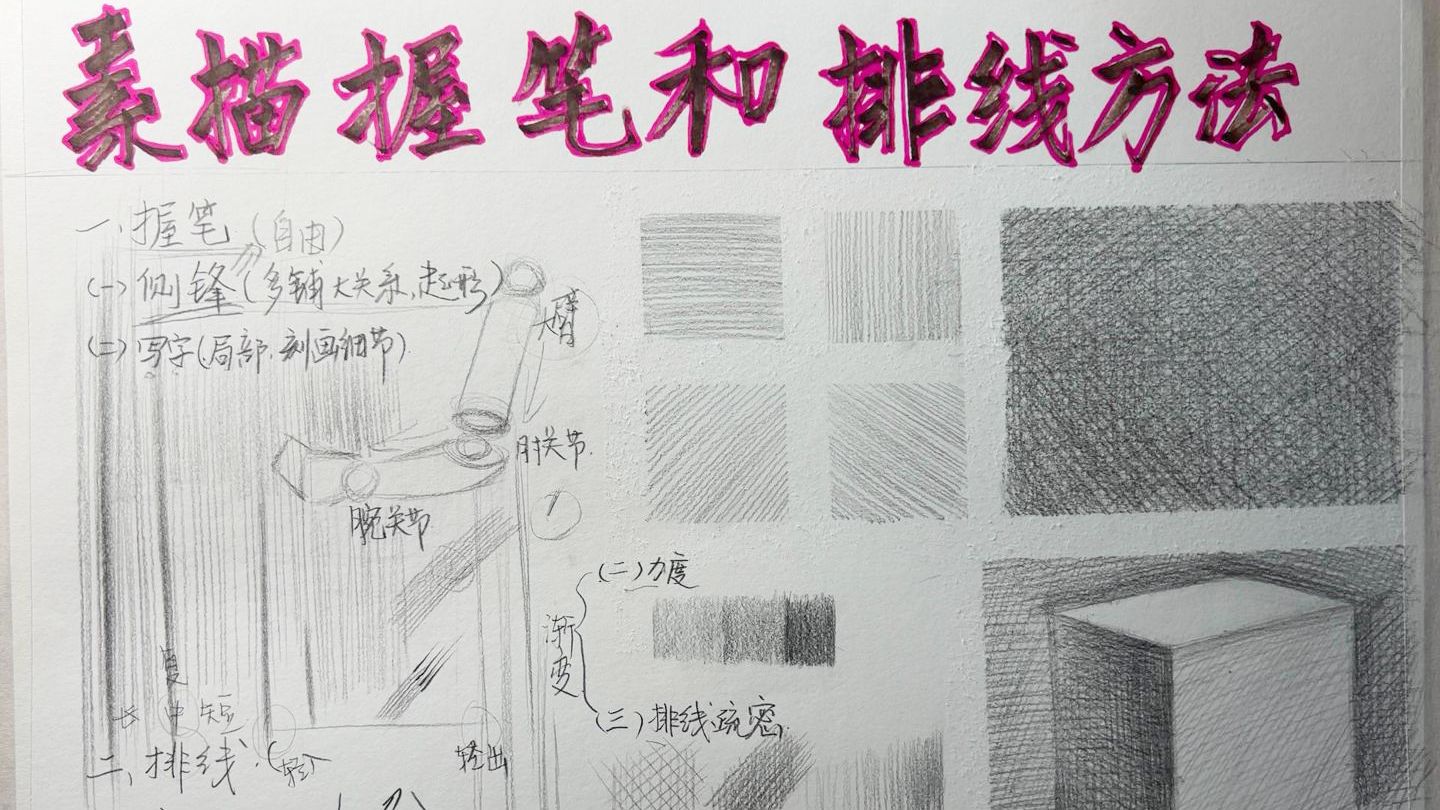 素描握笔和排线方法
一、握笔(自由)
(一)侧锋(多铺大关系,起形)
(二)写字(局部,刻画细节).
大臂
肘关节.
腕关节
渐变
(二)力度
(三)排线疏密.
长 中 短
二、排线.(轻入
轻出